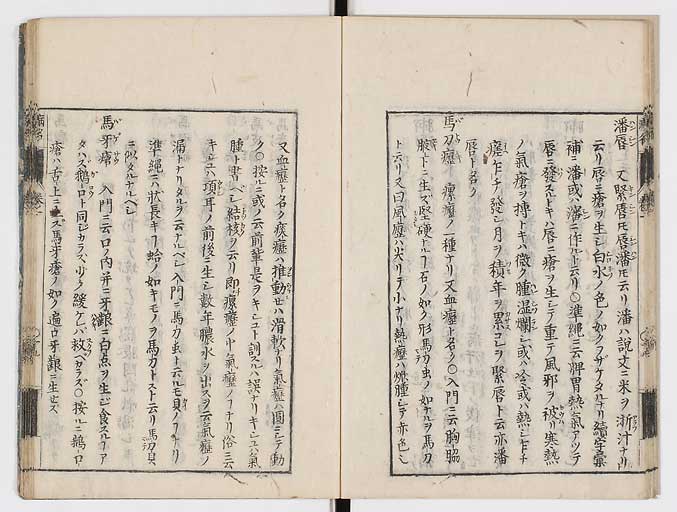 潘唇 又緊唇ト唇潘ト云リ潘ハ説文ニ米ヲ淅汁ナリト
云リ唇ニ瘡ヲ生シ白水ノ色ノ如クヲザケタルナリ續字彙
補ニ潘或ハ瀋ニ作ルト云リ○準繩ニ云脾胃熱氣アツテ
唇ニ發ストキハ唇ニ瘡ヲ生シテ重テ風邪ヲ被リ寒熱
ノ氣瘡ヲ搏トキハ微ク腫湿爛シ或ハ冷或ハ熱シ乍チ
瘥乍チ發シ月ヲ積年ヲ累コレヲ緊唇ト云亦潘
唇ト名ク
馬刀癧 瘰癧ノ一種ナリ又血癧ト名ク○入門ニ云胸脇
腋下ニ生ズ堅硬ナルコ石ノ如ク形馬刀虫ノ如ナルヲ馬刀
ト云リ又曰風癧ハ尖リテ小ナリ熱癧ハ焮腫シテ赤色シ
又血癧ト名ク痰癧ハ推動セハ滑軟ナリ氣癧ハ圓ニシテ動
ク○按ルニ或ノ云前輩長ヲキシコト訓スルハ誤ナリキシニハ氣
腫ト書ベシ結核ヲ云リ即瘰癧ノ中氣癧ノコナリ俗ニ云
キシニハ項耳ノ前後ニ生シ數年膿水ヲ出スヲ云氣癧ノ
漏トナリタルヲ云ナルベシ入門ニ馬刀虫ト云ルモ貝ノ
準繩ニハ狀長キコ蛤ノ如キモノヲ馬刀トスト云リ馬刀貝
ニ似タルナルベシ
馬牙𤵜 入門ニ云口ノ内并ニ牙齦ニ白点ヲ生シ食スルコア
タハス鵝口ト同ジカラス少ク緩ケレハ救ベカラズ○按ルニ鵝口
瘡ハ舌上ニ生ズ馬牙瘡ノ如ク遍ク牙齦ニ生セズ